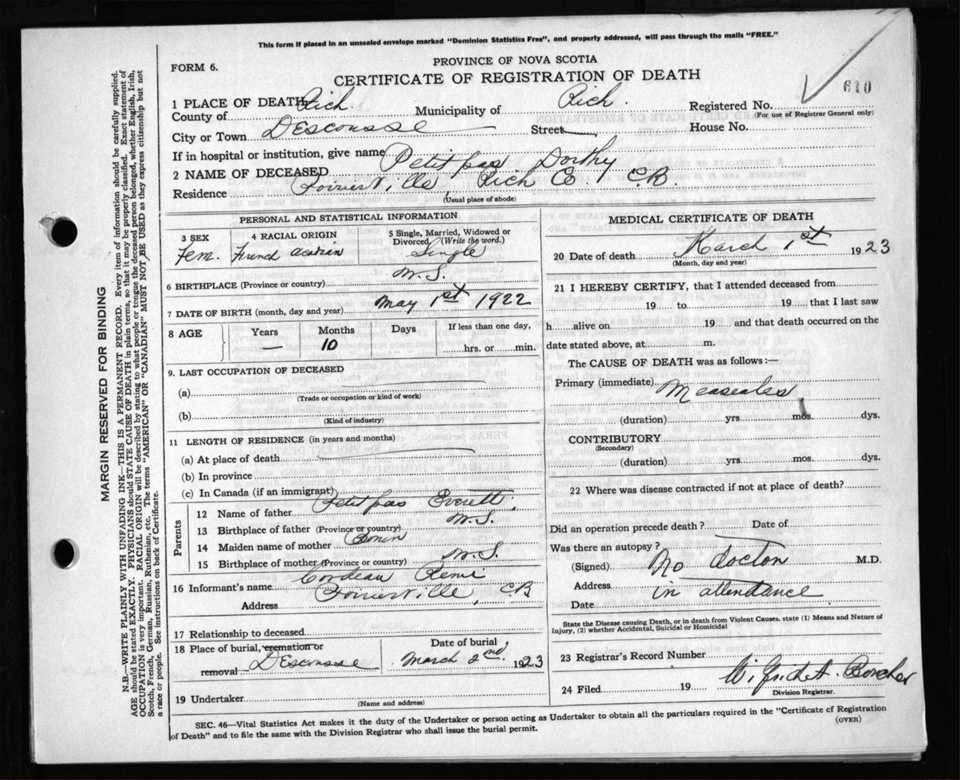 This form if placed in an unsealed envelope marked "Dominion Statistics Free", and properly addressed, will pass through the mails "FREE."
FORM 6.
PROVINCE OF NOVA SCOTIA
CERTIFICATE OF REGISTRATION OF DEATH
610
1 PLACE OF DEATH
County of Rich. Municipality of Rich. Registered No.
(For use of Registrar General only)
City or Town DEscousse Street House No.
If in hospital or institution, give name
2 NAME OF DECEASED Petitpas Dorthy
Residence Poirierville, Rich Co. C.B.
(Usual place of abode)
PERSONAL AND STATISTICAL INFORMATION
3 SEX Fem.
4 RACIAL ORIGIN French Acadian
5 Single, Married, Widowed or Divorced (Write the word.) Single
6 BIRTHPLACE (Province or country) N.S.
7 DATE OF BIRTH (month, day and year) May 1st 1922
8 AGE Years Months Days If less than one day,
— 10 hrs. or min.
9. LAST OCCUPATION OF DECEASED
(a)
(Trade or occupation or kind of work)
(b)
(Kind of industry)
11 LENGTH OF RESIDENCE (in years and months)
(a) At place of death
(b) In province
(c) In Canada (if an immigrant)
Parents
12 Name of father Petitpas Everett
13 Birthplace of father (Province or country) N.S.
14 Maiden name of mother Bonin
15 Birthplace of mother (Province or country) N.S.
16 Informant's name Cordeau Remi
Address Poirierville, C.B
17 Relationship to deceased
18 Place of burial, cremation or removal DEscousse
Date of burial, March 2nd. 1923
19 Undertaker
(Name and address)
MEDICAL CERTIFICATE OF DEATH
20 Date of death March 1st 1923
(Month, day and year)
21 I HEREBY CERTIFY, that I attended deceased from
19 to 19 that I last saw
h alive on 19 and that death occurred on the
date stated above, at m.
The CAUSE OF DEATH was as follows:—
Primary (immediate) Measeales
(duration) yrs. mos. dys.
CONTRIBUTORY
(Secondary)
(duration) yrs. mos. dys.
22 Where was disease contracted if not at place of death?
Did an operation precede death? Date of
Was there an autopsy?
(Signed) No doctor M.D.
Address in attendance
Date
State the Disease causing Death, or in death from Violent Causes, state (1) Means and Nature of
Injury, (2) whether Accidental, Suicidal or Homicidal
23 Registrar's Record Number
24 Filed 19 Wilfrid A.
Division Registrar.
SEC. 46—Vital Statistics Act makes it the duty of the Undertaker or person acting as Undertaker to obtain all the particulars required in the "Certificate of Registration
of Death" and to file the same with the Division Registrar who shall issue the burial permit.
(OVER)
MARGIN RESERVED FOR BINDING
N.B.—WRITE PLAINLY WITH UNFADING INK—THIS IS A PERMANENT RECORD. Every item of information should be carefully supplied.
AGE should be stated EXACTLY. PHYSICIANS should STATE CAUSE OF DEATH in plain terms, so that it may be properly classified. Exact statement of
OCCUPATION is very important. RACIAL ORIGIN will be described by stating to what people or tongue the deceased person belonged, whether English, Irish,
Scotch, French, German, Russian, Ruthenian, etc. The terms "AMERICAN" OR "CANADIAN" MUST NOT BE USED as they express citizenship but not
a race or people. See instructions on back of Certificate.